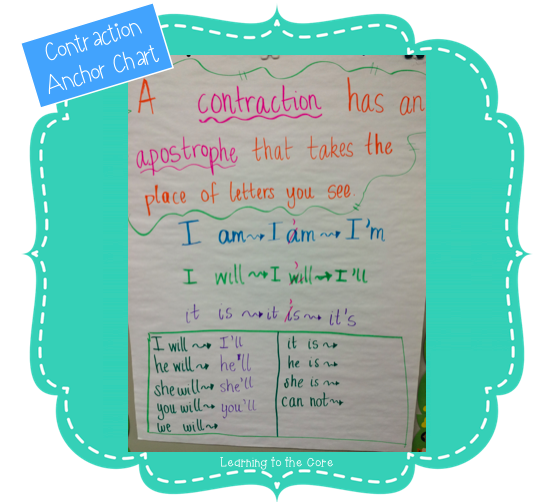 Contraction
Anchor Chart
A contraction has an
apostrophe that takes the
place of letters you see.
I am → I 'am → I'm
I will → I 'will → I'll
it is → it 'is → it's
I will → I'll
he will → he'll
she will → she'll
you will → you'll
we will →
it is →
he is →
she is →
can not →
Learning to the Core